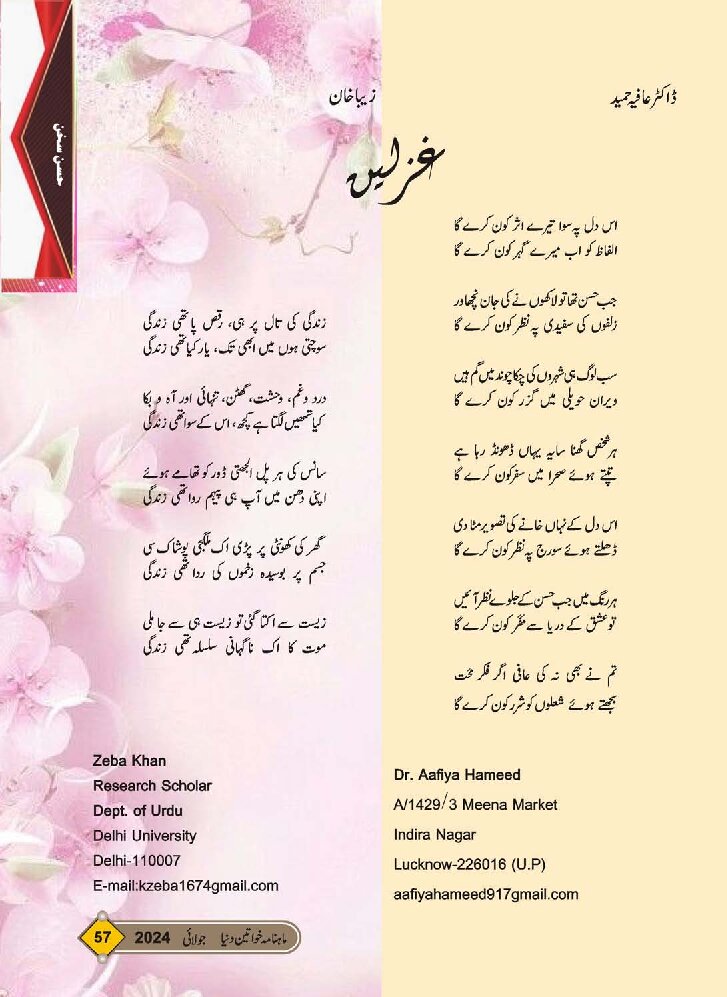 حسن سخن
ڈاکٹر عافیہ حمید
زیبا خان
غزلیں
اس دل پہ سوا تیرے اثر کون کرے گا
الفاظ کو اب میرے گہر کون کرے گا
جب حسن تھا تو لاکھوں نے کی جان نچھاور
زلفوں کی سفیدی پہ نظر کون کرے گا
سب لوگ ہی شہروں کی چکاچوند میں گم ہیں
ویران حویلی میں گزر کون کرے گا
ہر شخص گھنا سایہ یہاں ڈھونڈ رہا ہے
تپتے ہوئے صحرا میں سفر کون کرے گا
اس دل کے نہاں خانے کی تصویر مٹا دی
ڈھلتے ہوئے سورج پہ نظر کون کرے گا
ہر رنگ میں جب حسن کے جلوے نظر آئیں
تو عشق کے دریا سے مفر کون کرے گا
تم نے بھی نہ کی عافی اگر فکر
بجھتے ہوئے شعلوں کو شرر کون کرے گا
Dr. Aafiya Hameed
A/1429/3 Meena Market
Indira Nagar
Lucknow-226016 (U.P)
aafiyahameed917gmail.com
زندگی کی تال پر ہی، رقص پا تھی زندگی
سوچتی ہوں میں ابھی تک، یار کیا تھی زندگی
درد و غم، وحشت، گھٹن، تنہائی اور آہ و بکا
کیا تمھیں لگتا ہے کچھ، اس کے سوا تھی زندگی
سانس کی ہر پل الجھتی ڈور کو تھامے ہوئے
اپنی دھن میں آپ ہی پیہم روا تھی زندگی
گھر کی کھونٹی پر پڑی اک ملگجی پوشاک سی
جسم پر بوسیدہ زخموں کی ردا تھی زندگی
زیست سے اکتا گئی تو زیست ہی سے جا ملی
موت کا اک ناگہانی سلسلہ تھی زندگی
Zeba Khan
Research Scholar
Dept. of Urdu
Delhi University
Delhi-110007
E-mail:kzeba1674gmail.com
ماہنامہ خواتین دنیا جولائی 2024 57